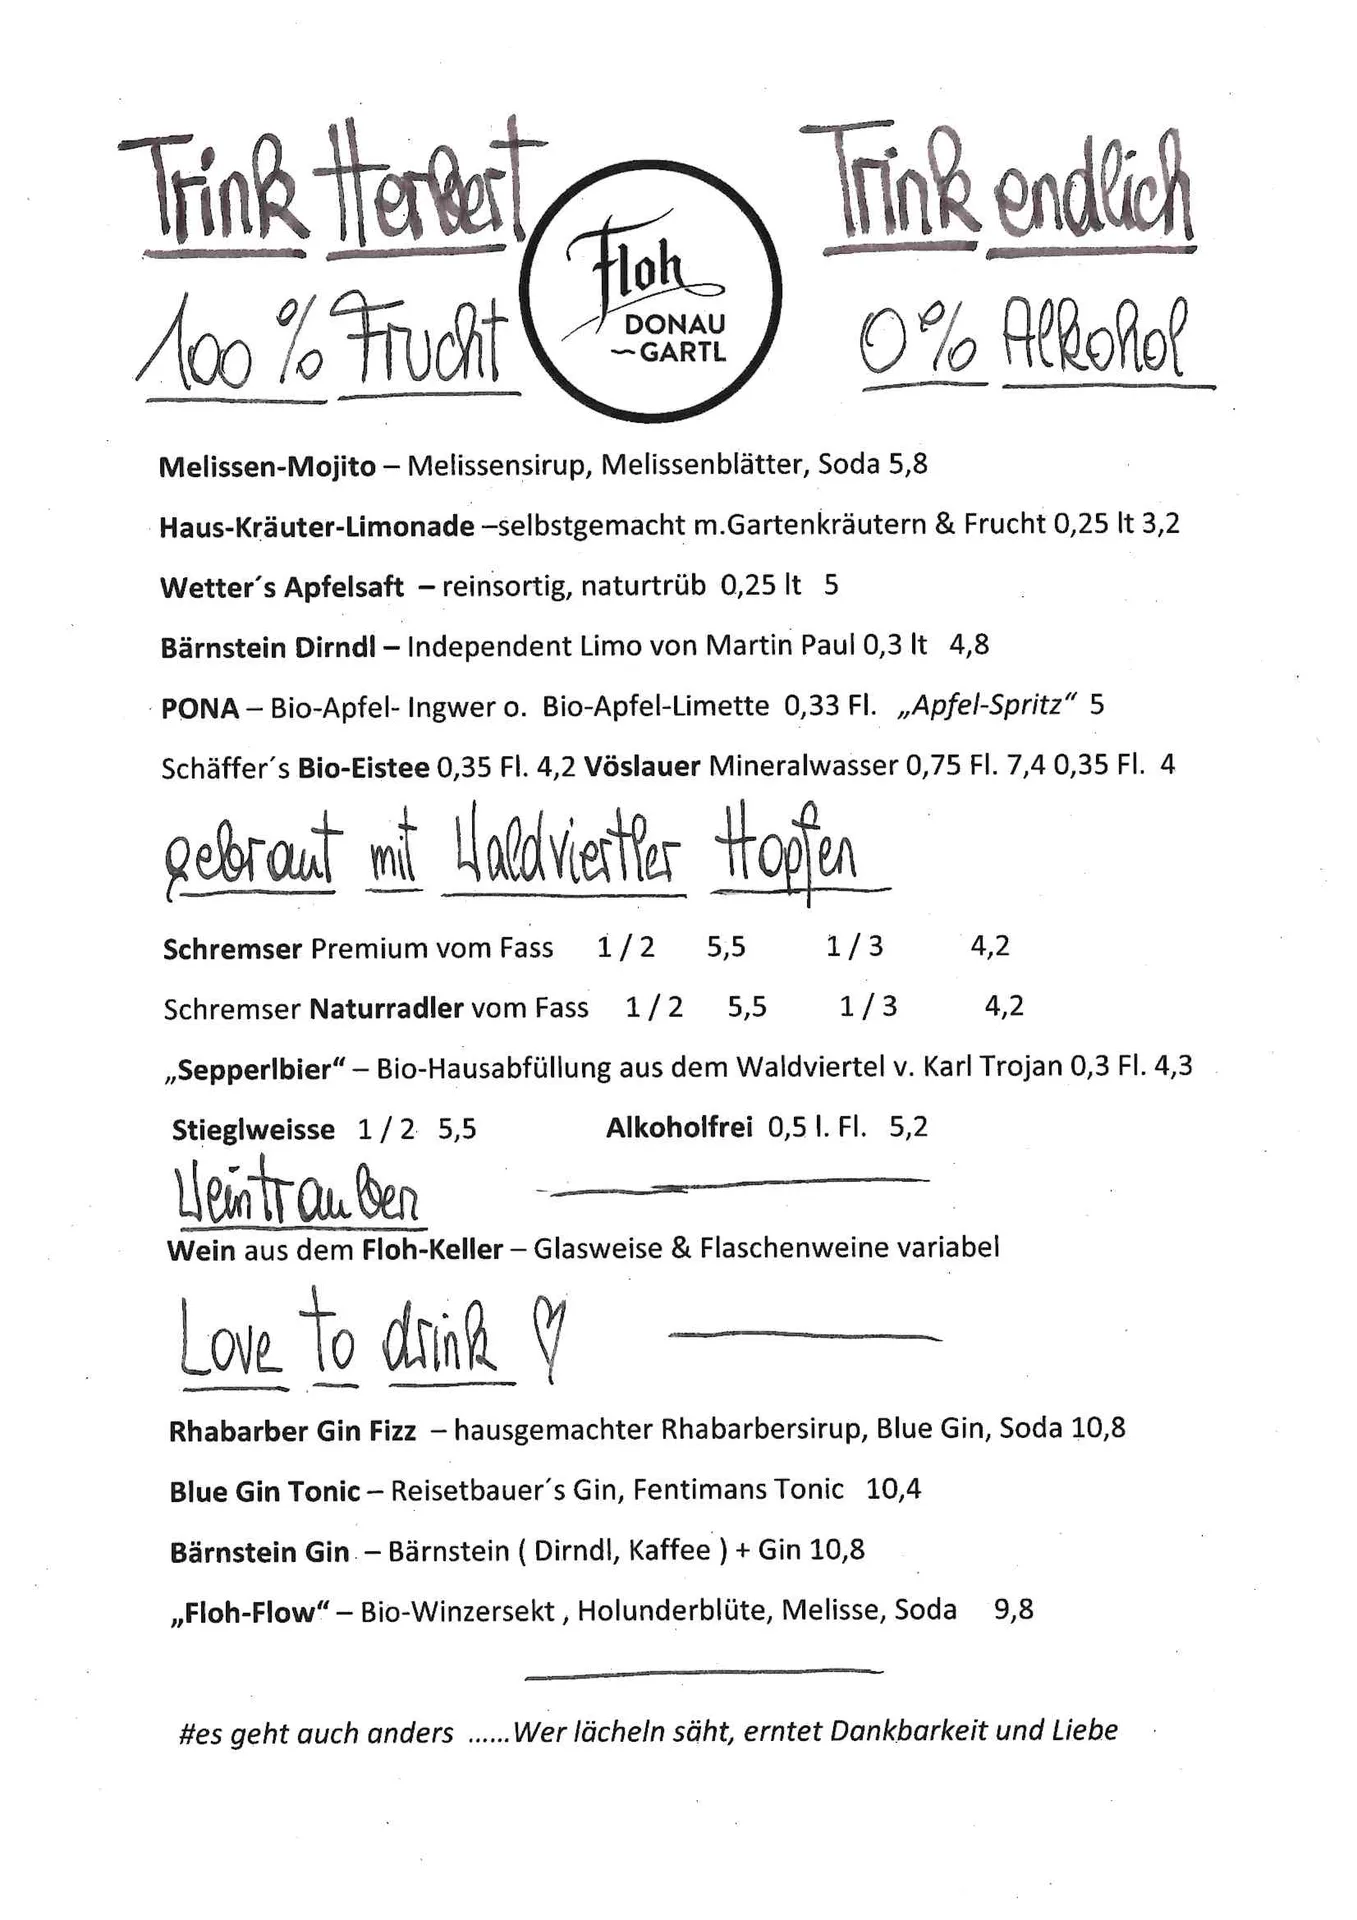 Trink Herbert Trink endlich
Floh
DONAU
~GARTL
100 % Frucht 0% Alkohol
Melissen-Mojito – Melissensirup, Melissenblätter, Soda 5,8
Haus-Kräuter-Limonade –selbstgemacht m.Gartenkräutern & Frucht 0,25 lt 3,2
Wetter´s Apfelsaft – reinsortig, naturtrüb 0,25 lt 5
Bärnstein Dirndl – Independent Limo von Martin Paul 0,3 lt 4,8
PONA – Bio-Apfel- Ingwer o. Bio-Apfel-Limette 0,33 Fl. „Apfel-Spritz“ 5
Schäffer´s Bio-Eistee 0,35 Fl. 4,2 Vöslauer Mineralwasser 0,75 Fl. 7,4 0,35 Fl. 4
gebraut mit Waldviertler Hopfen
Schremser Premium vom Fass 1 / 2 5,5 1 / 3 4,2
Schremser Naturradler vom Fass 1 / 2 5,5 1 / 3 4,2
„Sepperlbier“ – Bio-Hausabfüllung aus dem Waldviertel v. Karl Trojan 0,3 Fl. 4,3
Stieglweisse 1 / 2 5,5 Alkoholfrei 0,5 l. Fl. 5,2
Weintrauben
Wein aus dem Floh-Keller – Glasweise & Flaschenweine variabel
Love to drink ♡
Rhabarber Gin Fizz – hausgemachter Rhabarbersirup, Blue Gin, Soda 10,8
Blue Gin Tonic – Reisetbauer´s Gin, Fentimans Tonic 10,4
Bärnstein Gin – Bärnstein ( Dirndl, Kaffee ) + Gin 10,8
„Floh-Flow“ – Bio-Winzersekt , Holunderblüte, Melisse, Soda 9,8
#es geht auch anders ......Wer lächeln säht, erntet Dankbarkeit und Liebe